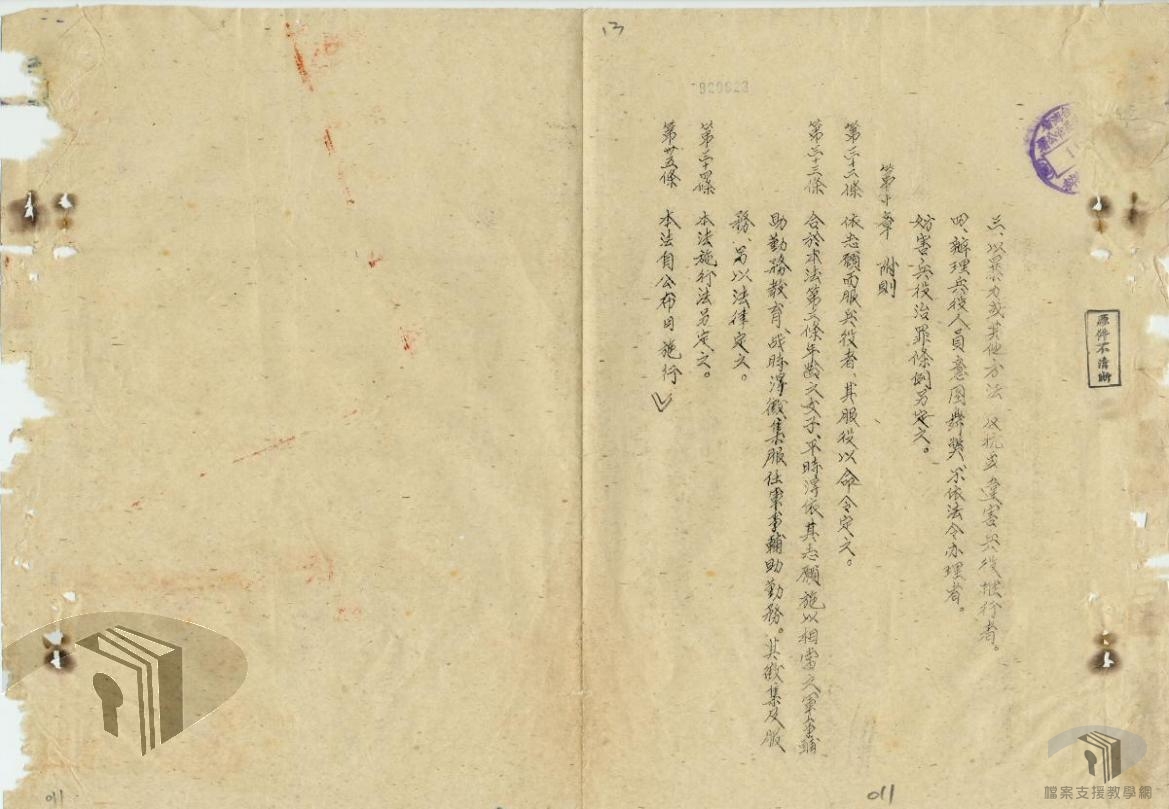 13
920023
三、以暴力或其他方法 反抗或違害兵役推行者。
四、辦理兵役人員意图舞弊不依法令办理者。
妨害兵役治罪條例另定之。
第十章 附則
第二十二條 依志願而服兵役者、其服役以命令定之。
第二十三條 合於本法第三條年齡之女子、平時得依其志願施以相當之軍事輔
助勤務教育、战時得徵集服任軍事輔助勤務。其徵集及服
務、另以法律定之。
第二十四條 本法施行法另定之。
第廿五條 本法自公布日施行
原件不清晰
011
011
檔案支援教學網